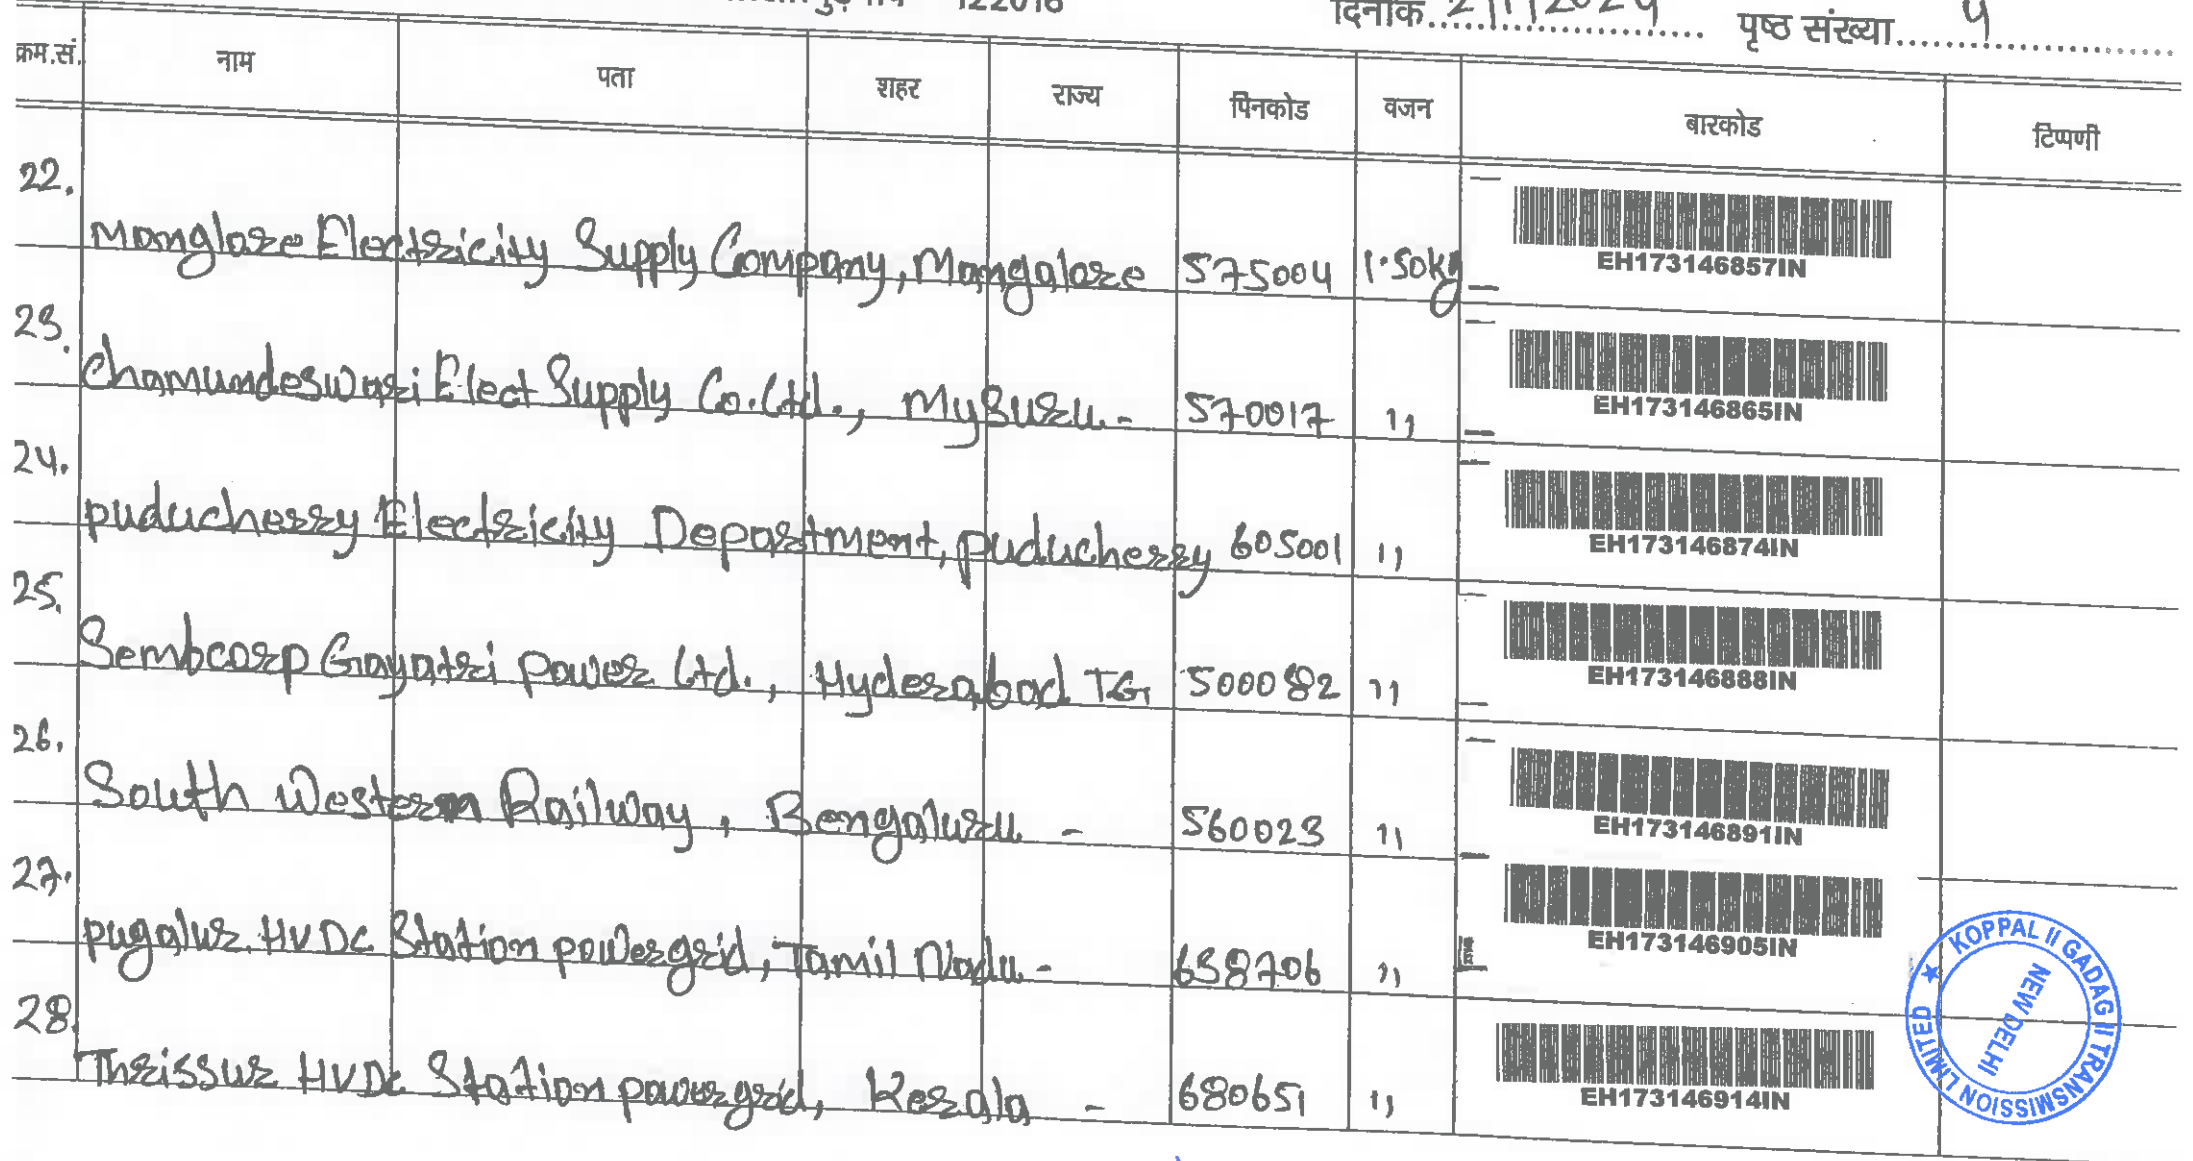 122016
दिनांक.. 2/1/2024 पृष्ठ संख्या.. 4
क्रम.सं. नाम पता शहर राज्य पिनकोड वजन बारकोड टिप्पणी
22. Manglore Electricity Supply Company, Mangalore 575004 1.50kg EH173146857IN
23. Chamundeswari Elect Supply Co. Ltd., Mysuru - 570017 ,, EH173146865IN
24. puducherry Electricity Department, puducherry 605001 ,, EH173146874IN
25. Sembcorp Gayatri power Ltd., Hyderabad TG, 500082 ,, EH173146888IN
26. South Western Railway, Bengaluru - 560023 ,, EH173146891IN
27. pugalur HVDC Station powergrid, Tamil Nadu - 638706 ,, EH173146905IN
28. Thrissur HVDC Station powergrid, Kerala - 680651 ,, EH173146914IN
★ KOPPAL II GADAG II TRANSMISSION LIMITED
NEW DELHI